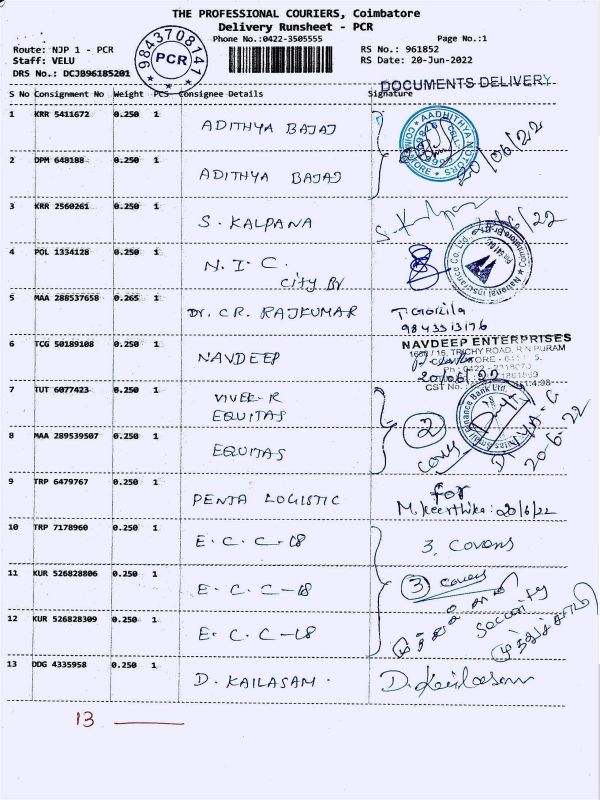 THE PROFESSIONAL COURIERS, Coimbatore
Delivery Runsheet - PCR
Phone No.:0422-3505555
Page No.:1
Route: NJP 1 - PCR
RS No.: 961852
Staff: VELU
RS Date: 20-Jun-2022
DRS No.: DCJB96185201
9843708141
PCR
DOCUMENTS DELIVERY
S No Consignment No Weight PCS Consignee Details Signature
1 KRR 5411672 0.250 1 ADITHYA BAJAJ
AADHITHYA MOTORS
20/06/22
2 DPM 648188 0.250 1 ADITHYA BAJAJ
3 KRR 2560261 0.250 1 S. KALPANA
4 POL 1334128 0.250 1 N. I. C.
CITY BV
National Insurance Co. Ltd.
5 MAA 288537658 0.265 1 Dr. CR. RAJKUMAR
9843313176
6 TCG 50189108 0.250 1 NAVDEEP
NAVDEEP ENTERPRISES
TRICHY ROAD, R N PURAM
20/06/22
7 TUT 6077423 0.250 1 VIVEK-R
EQUITAS
Small Finance Bank Ltd
8 MAA 289539507 0.250 1 EQUITAS
2
Covers
DIVYA-G
20-6-22
9 TRP 6479767 0.250 1 PENTA LOGISTIC
for
M. Keerthika: 20/6/22
10 TRP 7178960 0.250 1 E. C. C-18
3. Covers
11 KUR 526828806 0.250 1 E. C. C-18
3 covers
12 KUR 526828309 0.250 1 E. C. C-18
13 DDG 4335958 0.250 1 D. KAILASAM.
D. Kailasam
13